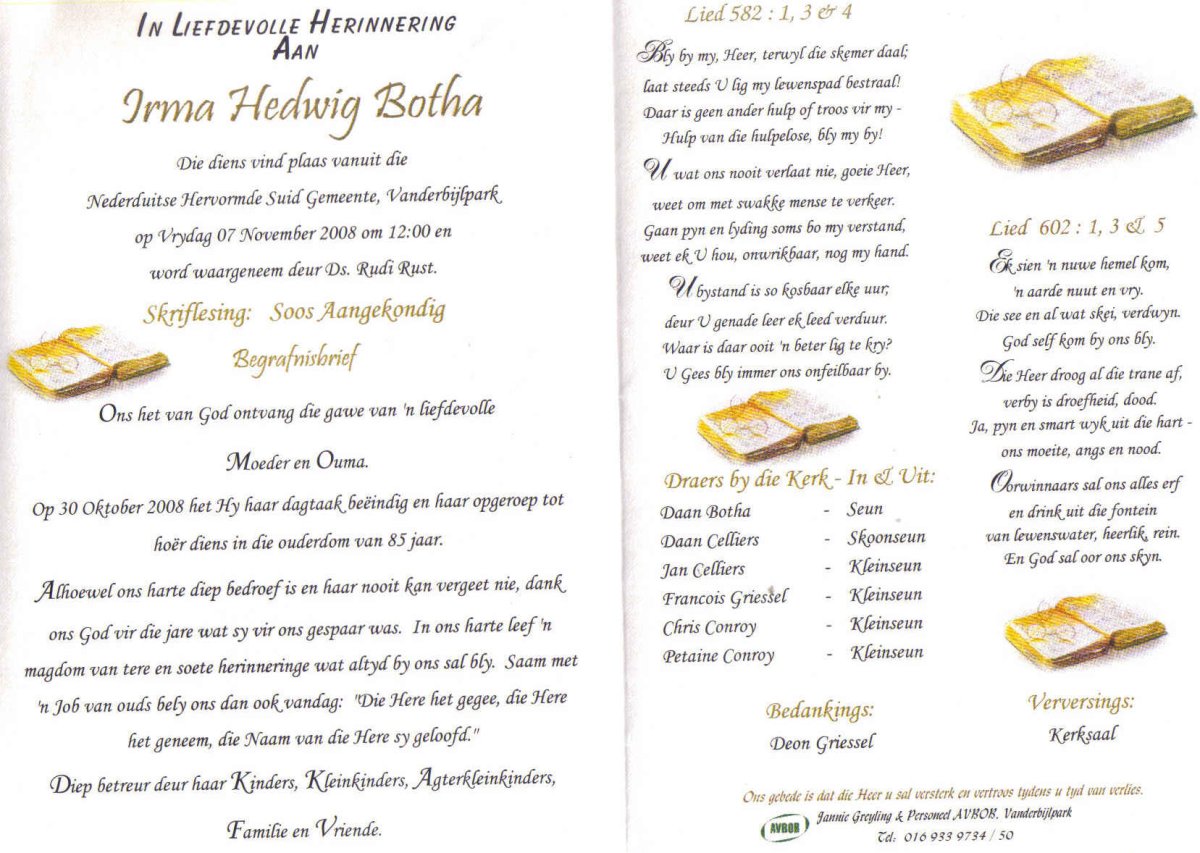 In Liefdevolle Herinnering
Aan
Irma Hedwig Botha
Die diens vind plaas vanuit die
Nederduitse Hervormde Suid Gemeente, Vanderbijlpark
op Vrydag 07 November 2008 om 12:00 en
word waargeneem deur Ds. Rudi Rust.
Skriflesing: Soos Aangekondig
Begrafnisbrief
Ons het van God ontvang die gawe van 'n liefdevolle
Moeder en Ouma.
Op 30 Oktober 2008 het Hy haar dagtaak beëindig en haar opgeroep tot
hoër diens in die ouderdom van 85 jaar.
Alhoewel ons harte diep bedroef is en haar nooit kan vergeet nie, dank
ons God vir die jare wat sy vir ons gespaar was. In ons harte leef 'n
magdom van tere en soete herinneringe wat altyd by ons sal bly. Saam met
'n Job van ouds bely ons dan ook vandag: "Die Here het gegee, die Here
het geneem, die Naam van die Here sy geloofd."
Diep betreur deur haar Kinders, Kleinkinders, Agterkleinkinders,
Familie en Vriende.
Lied 582 : 1, 3 & 4
Bly by my, Heer, terwyl die skemer daal;
laat steeds U lig my lewenspad bestraal!
Daar is geen ander hulp of troos vir my -
Hulp van die hulpelose, bly my by!
U wat ons nooit verlaat nie, goeie Heer,
weet om met swakke mense te verkeer.
Gaan pyn en lyding soms bo my verstand,
weet ek U hou, onwrikbaar, nog my hand.
U bystand is so kosbaar elke uur;
deur U genade leer ek leed verduur.
Waar is daar ooit 'n beter lig te kry?
U Gees bly immer ons onfeilbaar by.
Draers by die Kerk - In & Uit:
Daan Botha - Seun
Daan Celliers - Skoonseun
Jan Celliers - Kleinseun
Francois Griessel - Kleinseun
Chris Conroy - Kleinseun
Petaine Conroy - Kleinseun
Bedankings:
Deon Griessel
Lied 602 : 1, 3 & 5
Ek sien 'n nuwe hemel kom,
'n aarde nuut en vry.
Die see en al wat skei, verdwyn.
God self kom by ons bly.
Die Heer droog al die trane af,
verby is droefheid, dood.
Ja, pyn en smart wyk uit die hart -
ons moeite, angs en nood.
Oorwinnaars sal ons alles erf
en drink uit die fontein
van lewenswater, heerlik, rein.
En God sal oor ons skyn.
Verversings:
Kerksaal
Ons gebede is dat die Heer u sal versterk en vertroos tydens u tyd van verlies.
AVBOB
Jannie Greyling & Personeel AVBOB, Vanderbijlpark
Tel: 016 933 9734 / 50